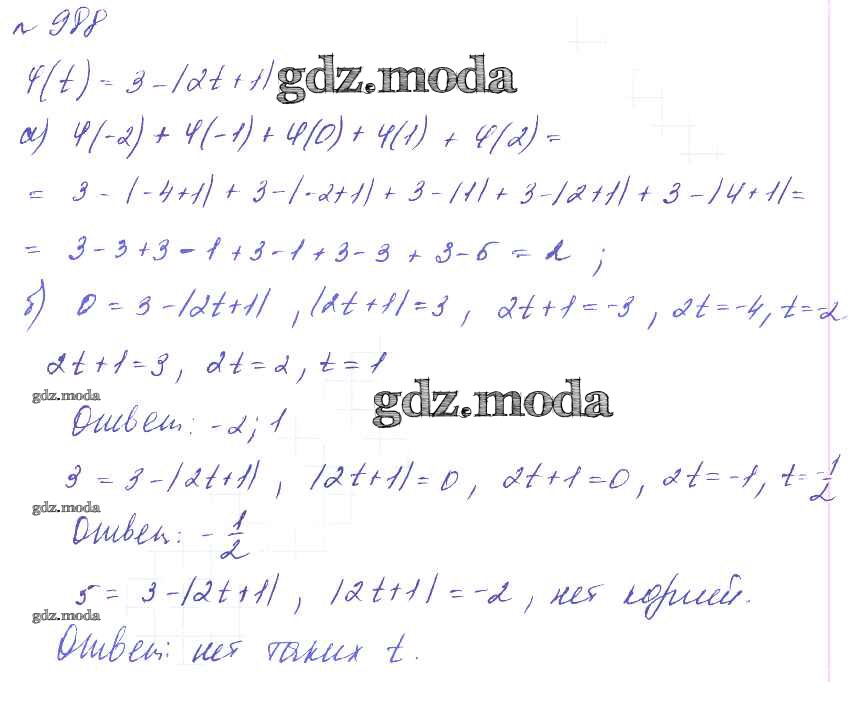 № 988
φ(t) = 3 - |2t + 1| gdz.moda
а) φ(-2) + φ(-1) + φ(0) + φ(1) + φ(2) =
= 3 - |-4+1| + 3 - |-2+1| + 3 - |1| + 3 - |2+1| + 3 - |4+1| =
= 3 - 3 + 3 - 1 + 3 - 1 + 3 - 3 + 3 - 5 = 2 ;
б) 0 = 3 - |2t+1| , |2t+1| = 3 , 2t+1 = -3 , 2t = -4, t = -2
2t+1 = 3, 2t = 2, t = 1
gdz.moda
gdz.moda
Ответ: -2; 1
3 = 3 - |2t+1| , |2t+1| = 0 , 2t+1 = 0, 2t = -1, t = -1/2
gdz.moda
Ответ: - 1/2
5 = 3 - |2t+1| , |2t+1| = -2 , нет корней.
gdz.moda
Ответ: нет таких t.